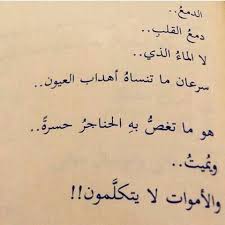 الدمعُ..
دمعُ القلبِ..
لا الماءُ الذي..
سرعان ما تنساهُ أهداب العيون..
هو ما تغصُّ بهِ الحناجرُ حسرةً..
ويُميتُ..
والأموات لا يتكلَّمون!!